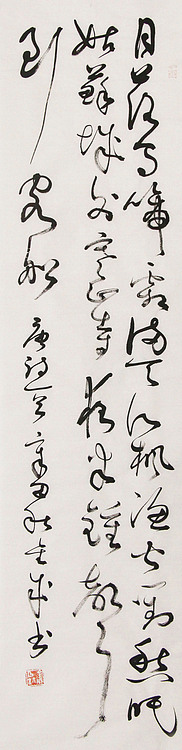 月落烏啼霜滿天江楓漁火對愁眠
姑蘇城外寒山寺夜半鐘聲
到客船 唐詩 辛丑秋 成书